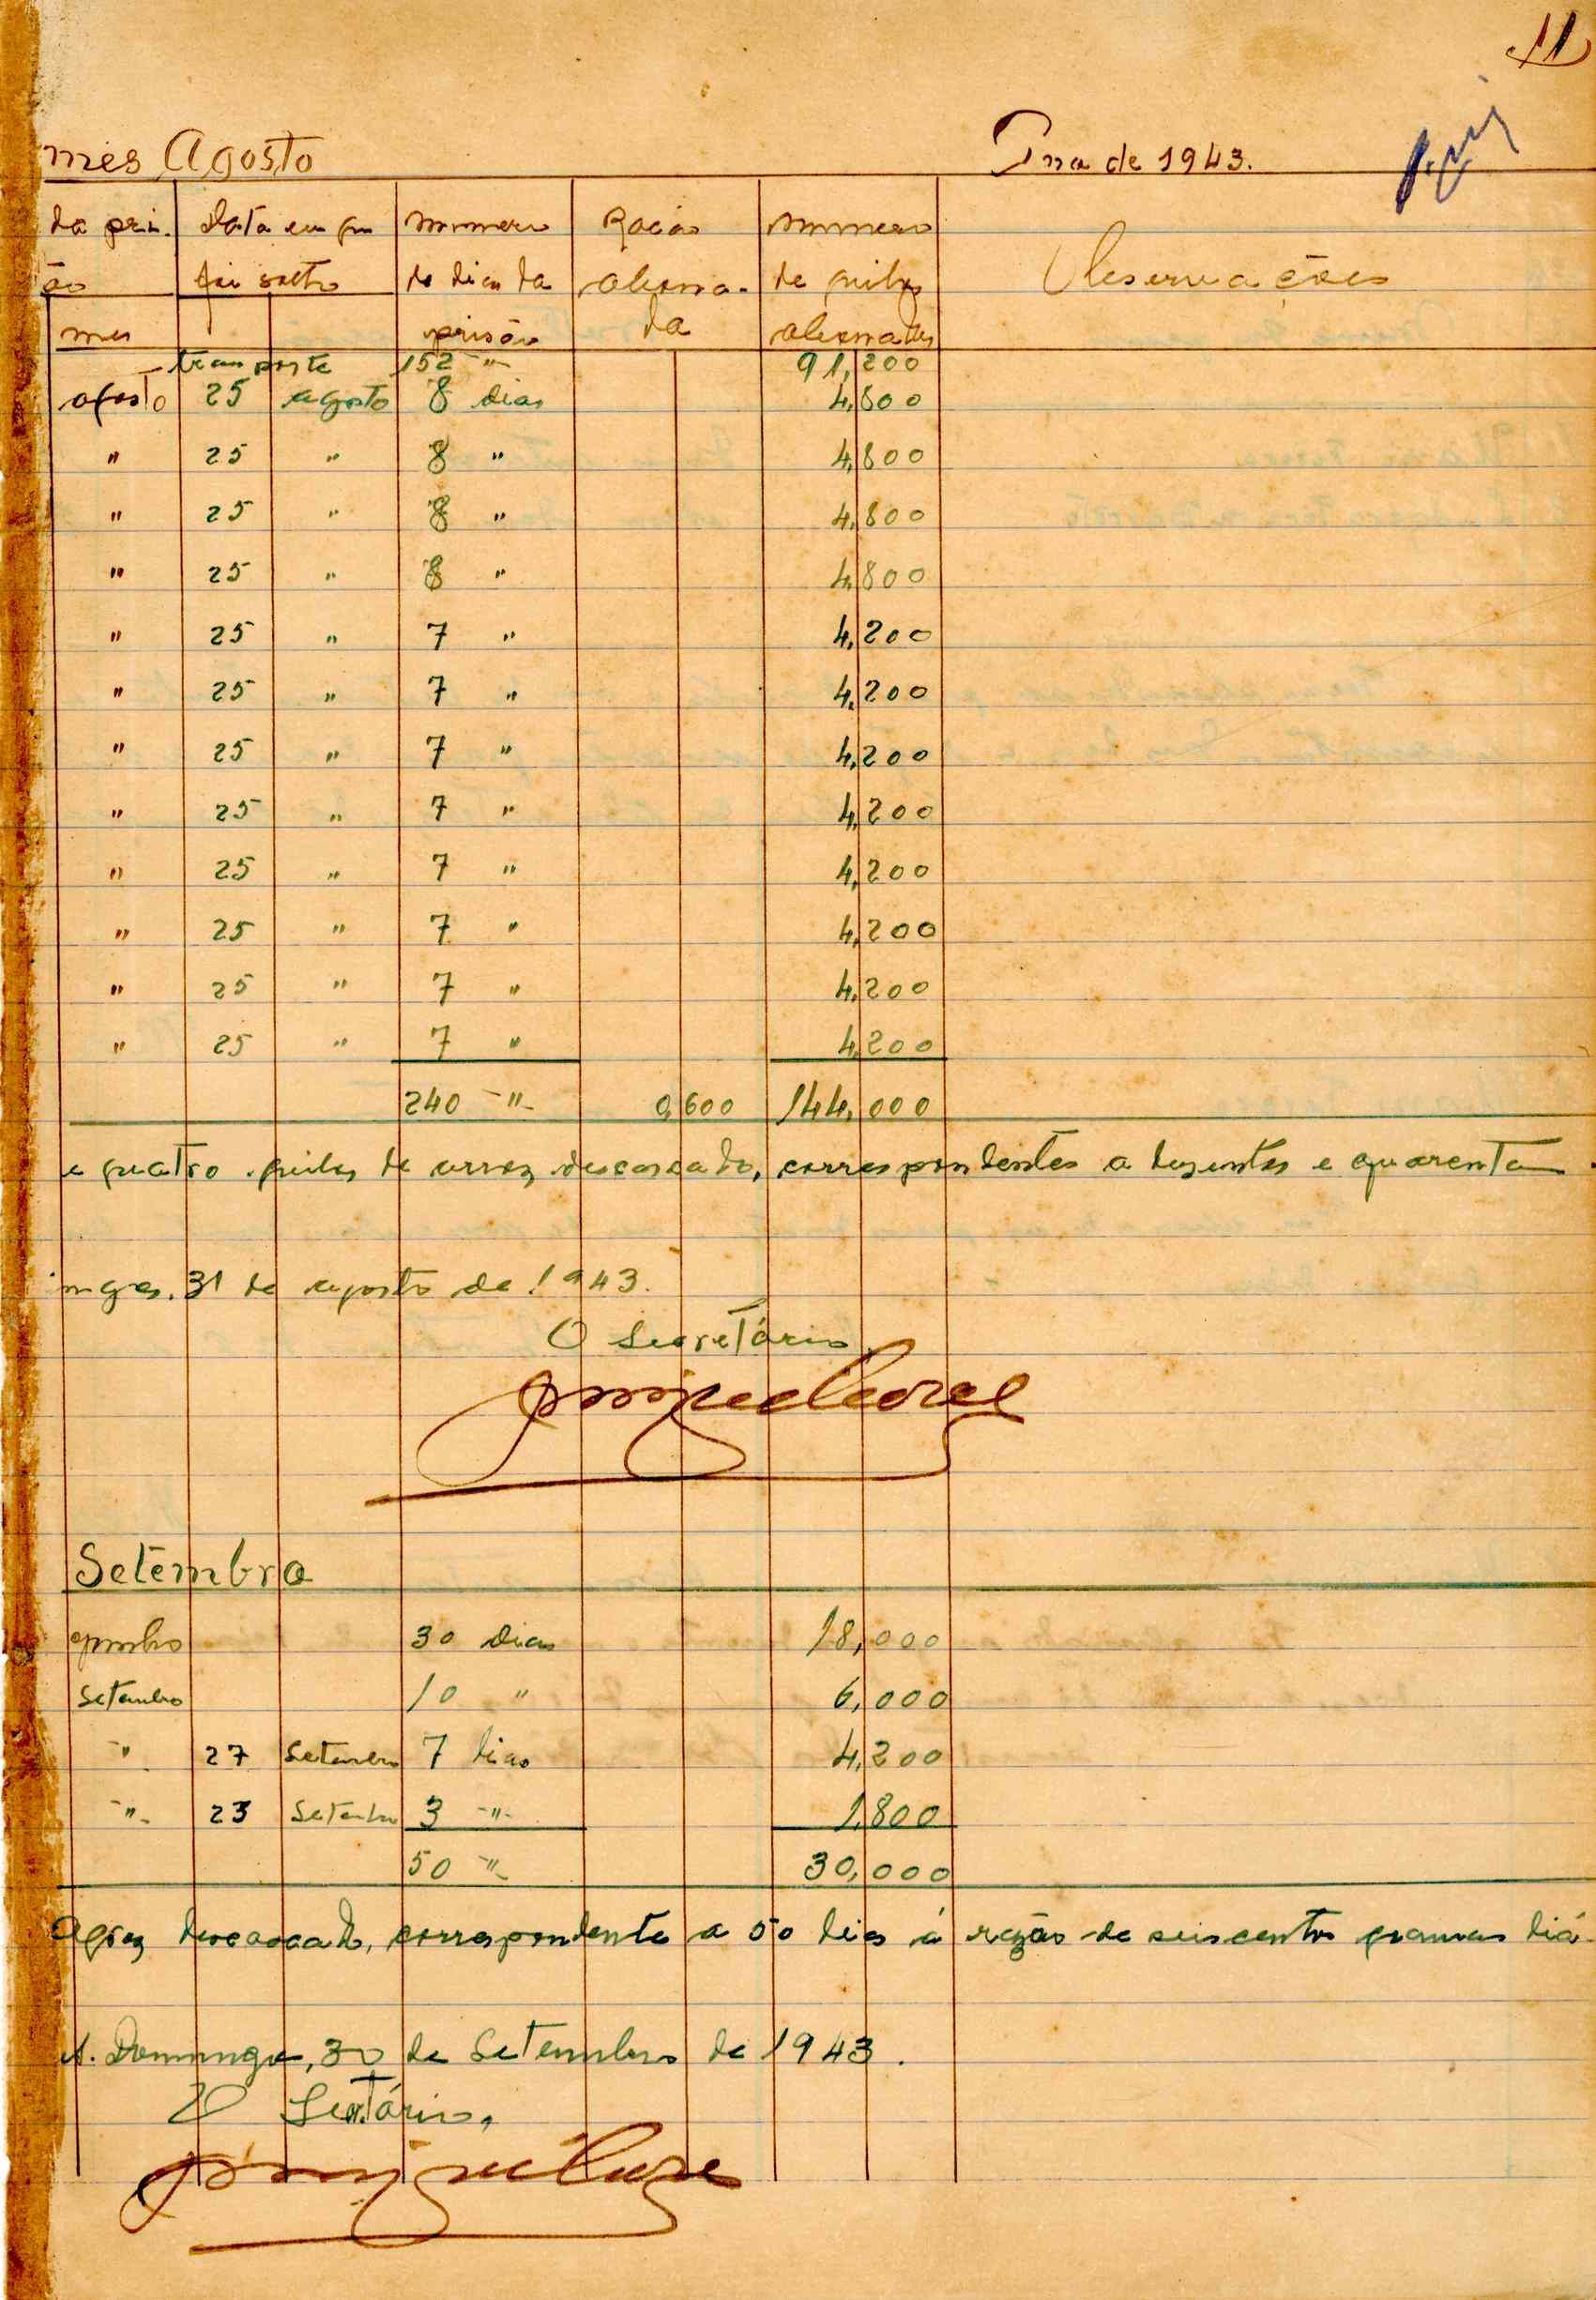 11
mês Agosto de 1943.
da pri- Data em que numero Ração numero
ão foi solto de dias da abona- de quilos Observações
mes prisão da abonados
transporte 152 -"- 91,200
agosto 25 agosto 8 dias 4,800
" 25 " 8 " 4,800
" 25 " 8 " 4,800
" 25 " 8 " 4,800
" 25 " 7 " 4,200
" 25 " 7 " 4,200
" 25 " 7 " 4,200
" 25 " 7 " 4,200
" 25 " 7 " 4,200
" 25 " 7 " 4,200
" 25 " 7 " 4,200
" 25 " 7 " 4,200
240 -"- 0,600 144,000
e quatro quilos de arroz descascado, correspondentes a duzentos e quarenta
ingos. 31 de agosto de 1943.
O Secretário
Setembro
30 dias 18,000
Setembro 10 " 6,000
" 27 Setembro 7 dias 4,200
-"- 23 Setembro 3 -"- 1,800
50 -"- 30,000
arroz descascado, correspondente a 50 dias á razão de seiscentos gramas diá-
Domingos, 30 de Setembro de 1943.
O Secretário,